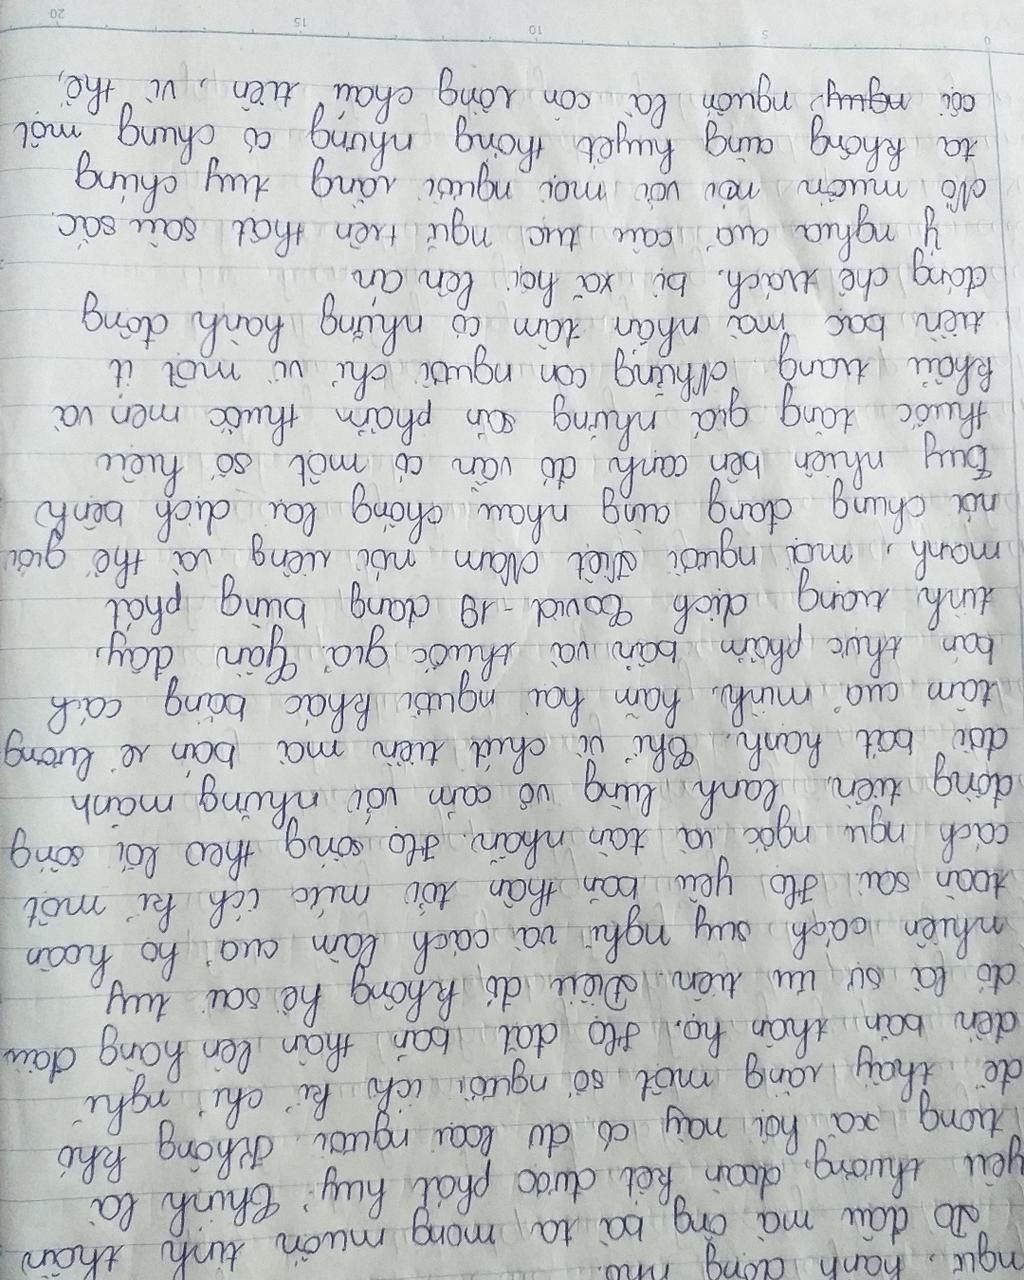 ngữ, hành động nhỏ.
Do đâu mà ông bà ta mong muốn tinh thần
yêu thương, đoàn kết được phát huy? Chính là
trong xã hội này có đủ loại người. Không khó
để thấy rằng một số người ích kỉ chỉ nghĩ
đến bản thân họ. Họ đặt bản thân lên hàng đầu
đó là sự ưu tiên. Điều đó không hề sai tuy
nhiên cách suy nghĩ và cách làm của họ hoàn
toàn sai. Họ yêu bản thân tới mức ích kỉ một
cách ngu ngốc và tàn nhẫn. Họ sống theo lối sống
đồng tiền, lạnh lùng vô cảm với những mảnh
đời bất hạnh. Chỉ vì chút tiền mà bán rẻ lương
tâm của mình, hãm hại người khác bằng cách
bán thực phẩm bẩn và thuốc giả. Gần đây,
tình trạng dịch Covid-19 đang bùng phát
mạnh, mọi người Việt Nam nói riêng và thế giới
nói chung đang cùng nhau chống lại dịch bệnh
Tuy nhiên bên cạnh đó vẫn có một số hiệu
thuốc tăng giá những sản phẩm thuốc men và
khẩu trang. Những con người chỉ vì một ít
tiền bạc mà nhẫn tâm có những hành động
đáng chê trách, bị xã hội lên án
Ý nghĩa của câu tục ngữ trên thật sâu sắc.
Nó muốn nói với mọi người rằng tuy chúng
ta không cùng huyết thống nhưng có chung một
cội nguồn là con rồng cháu tiên, vì thế,
0 5 10 15 20